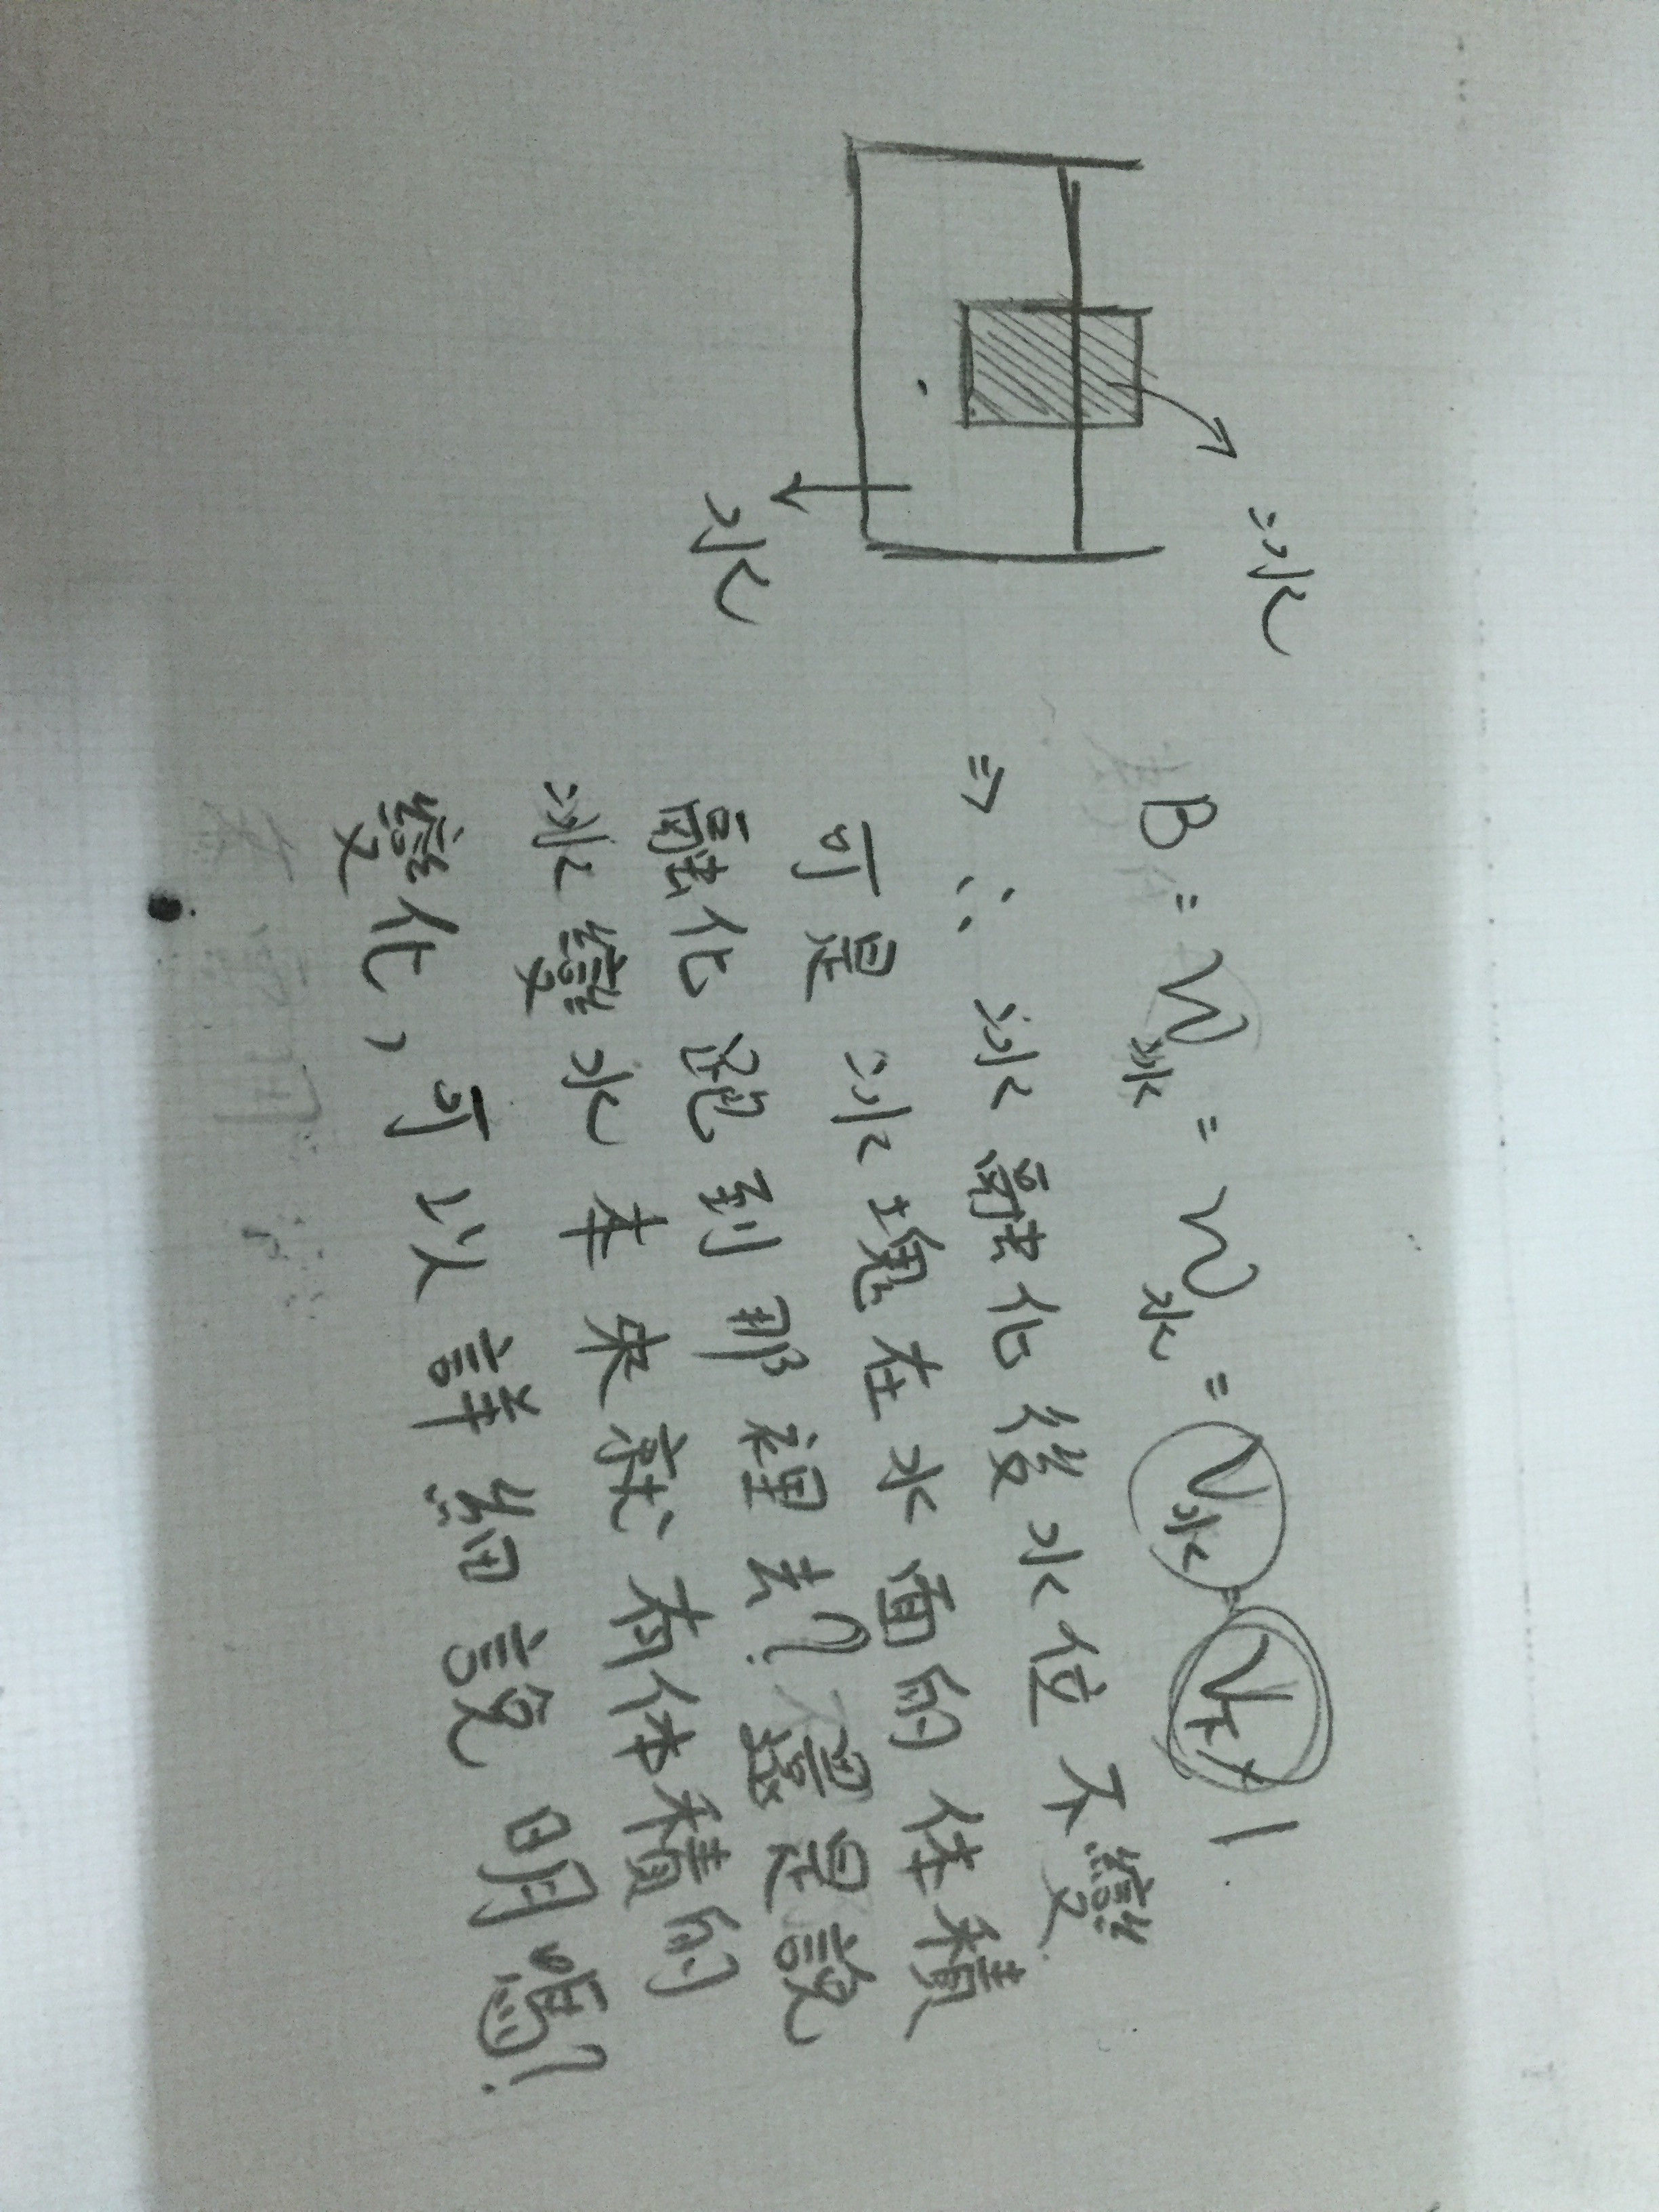 冰
水
B = W冰 = W水 = V水 = V下 × 1
⇒ ∴ 冰融化後水位不變
可是冰塊在水面的体積
融化跑到那裡去? 還是說
冰變水本來就有体積的
變化, 可以詳細說明嗎?